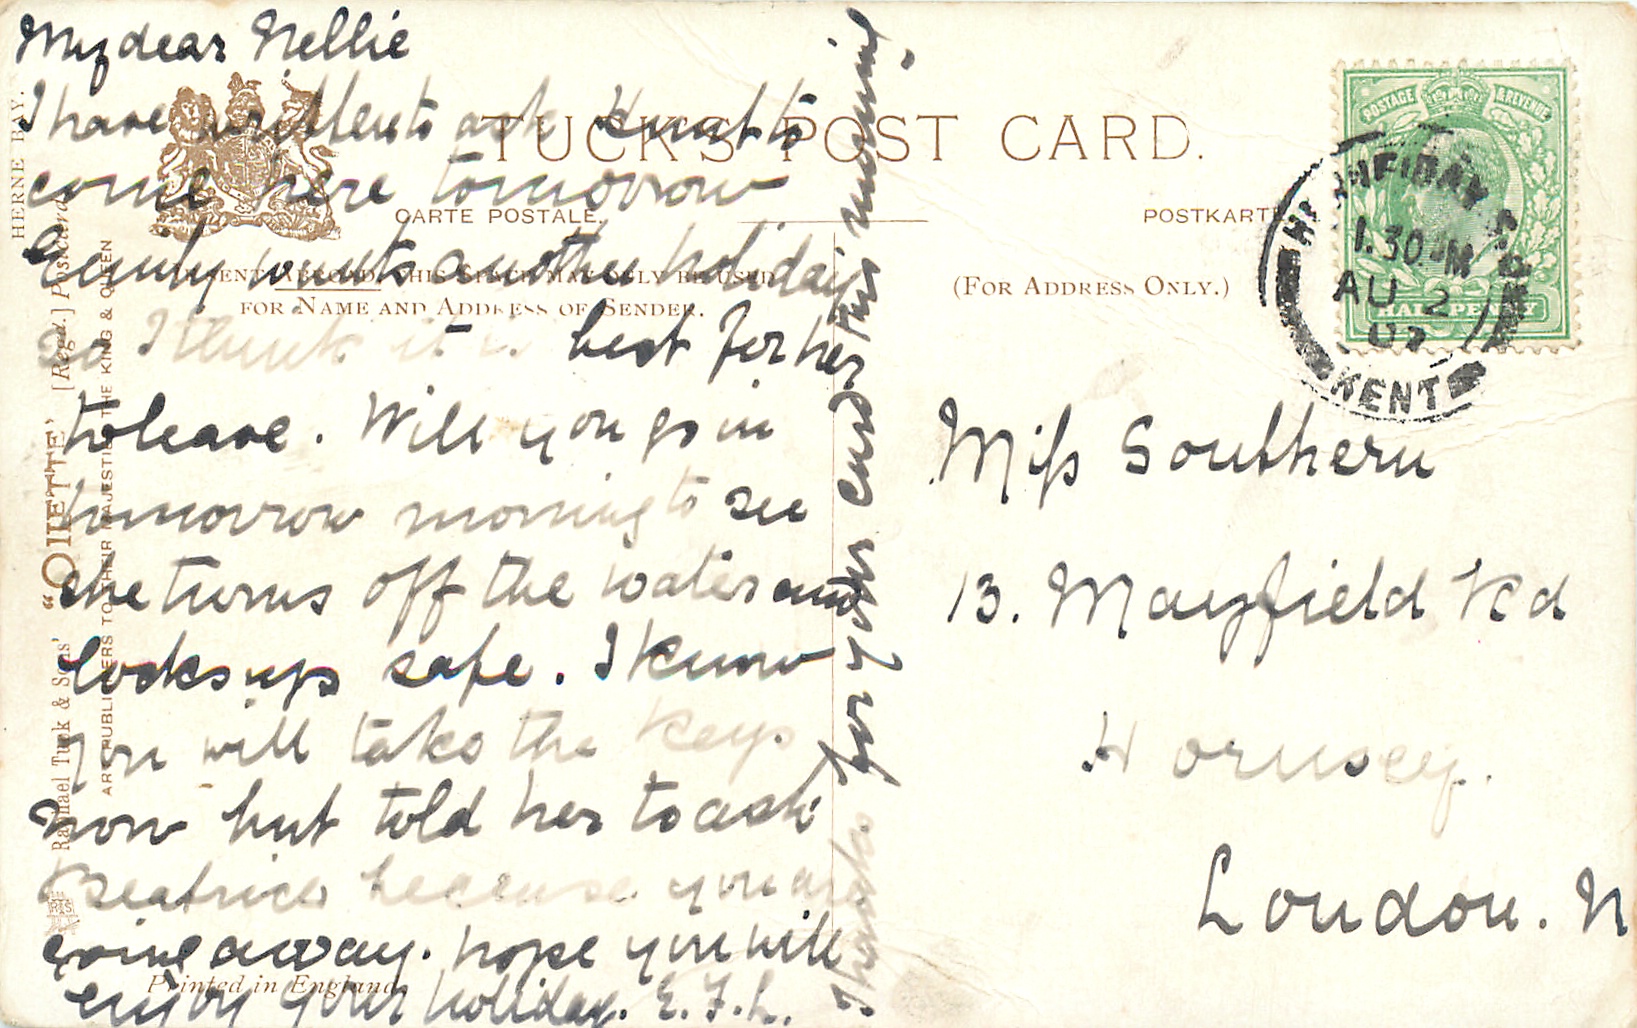 My dear Nellie
I have written to ask Kunt to
come here tomorrow
Emily wants another holiday
so I think it is best for her
to leave. Will you go in
tomorrow morning to see
she turns off the water and
locks up safe. I know
you will take the keys
now but told her to ask
Beatrice because you are
going away. hope you will
enjoy your holiday. E. F. L.
Thanks for your card this morning.
TUCK'S POST CARD.
CARTE POSTALE.
POSTKARTE
SENT ABROAD, THIS SPACE MAY ONLY BE USED
FOR NAME AND ADDRESS OF SENDER.
(FOR ADDRESS ONLY.)
HERNE BAY.
Raphael Tuck & Sons' "OILETTE" [Regd.] Postcard
ART PUBLISHERS TO THEIR MAJESTIES THE KING & QUEEN
Printed in England
POSTAGE & REVENUE
HALFPENNY
HERNE BAY S.O.
1.30 PM
AU 2
07
KENT
Miss Southern
13. Mayfield Rd
Hornsey.
London. N